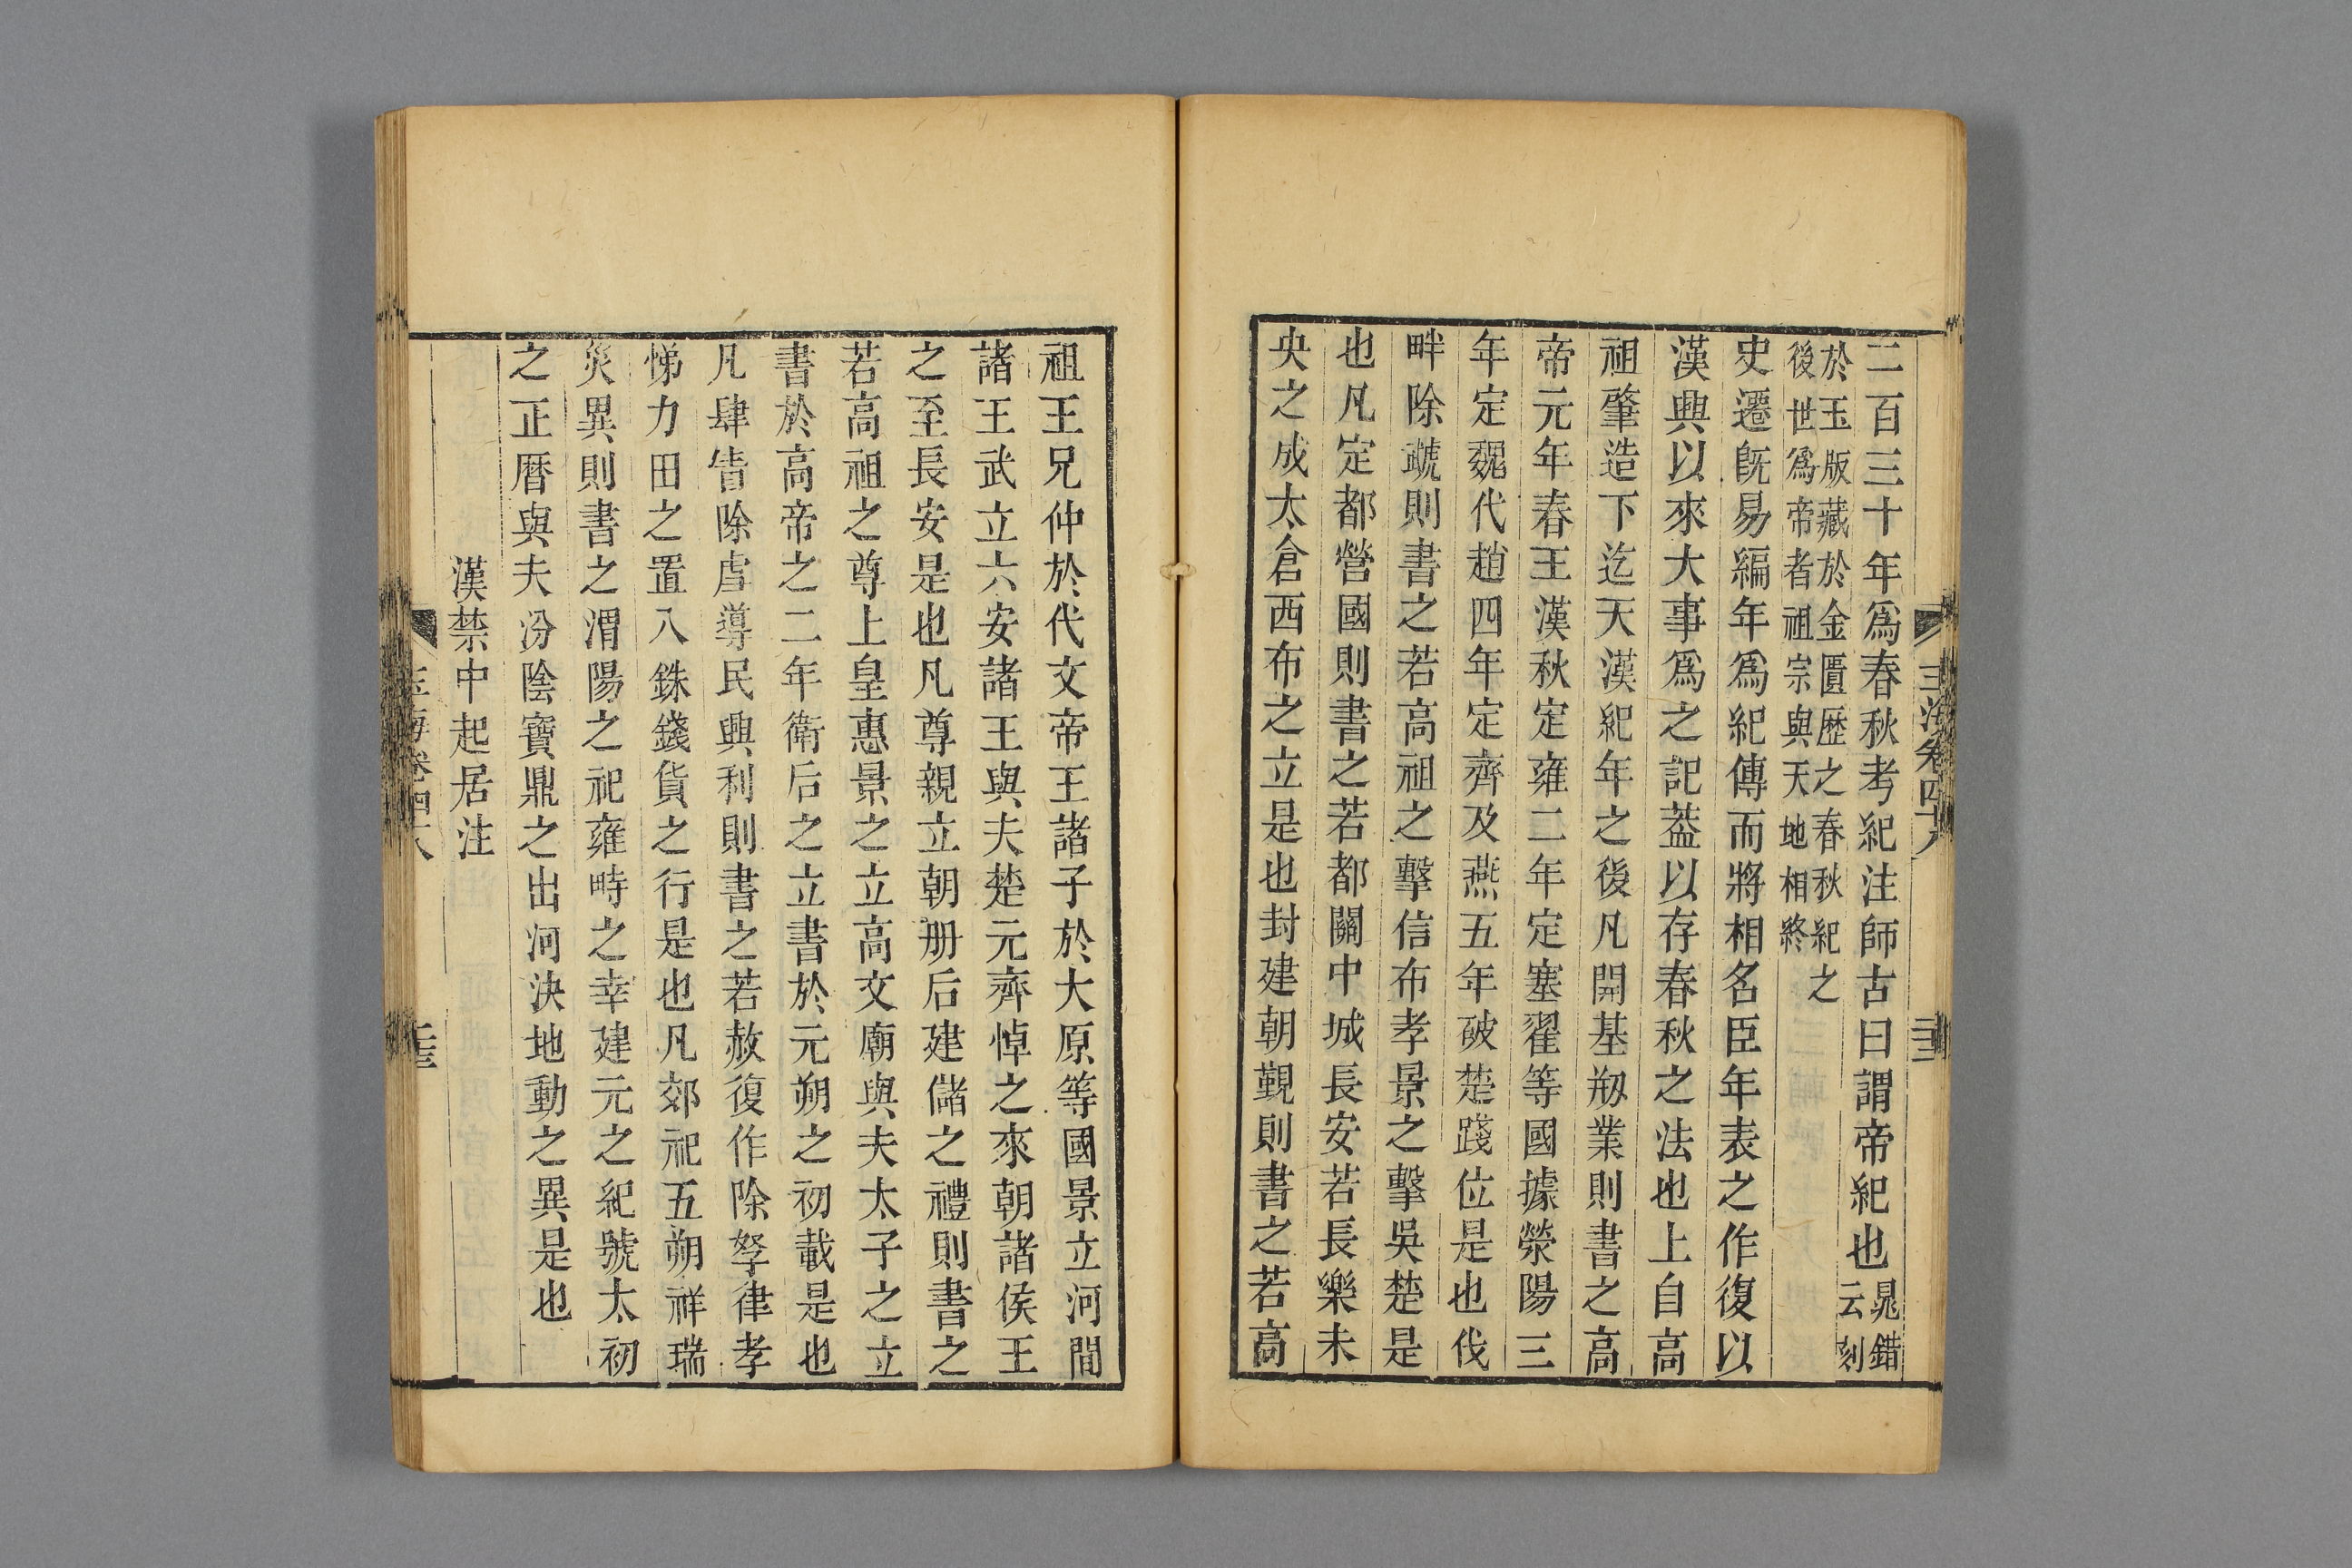 二百三十年爲春秋考紀注師古曰謂帝紀也晁錯云刻
於玉版藏於金匱歴之春秋紀之
後世爲帝者祖宗與天地相終
史遷旣易編年爲紀傳而將相名臣年表之作復以
漢興以來大事爲之記葢以存春秋之法也上自高
祖肇造下迄天漢紀年之後凡開基剏業則書之高
帝元年春王漢秋定雍二年定塞翟等國據滎陽三
年定魏代趙四年定齊及燕五年破楚踐位是也伐
畔除虣則書之若高祖之擊信布孝景之擊吳楚是
也凡定都營國則書之若都關中城長安若長樂未
央之成太倉西布之立是也封建朝覲則書之若高
祖王兄仲於代文帝王諸子於大原等國景立河間
諸王武立六安諸王與夫楚元齊悼之來朝諸侯王
之至長安是也凡尊親立朝册后建儲之禮則書之
若高祖之尊上皇惠景之立高文廟與夫太子之立
書於高帝之二年衛后之立書於元朔之初載是也
凡肆眚除虐導民興利則書之若赦復作除孥律孝
悌力田之置八銖錢貨之行是也凡郊祀五朔祥瑞
災異則書之渭陽之祀雍畤之幸建元之紀號太初
之正曆與夫汾陰寶鼎之出河決地動之異是也
漢禁中起居注